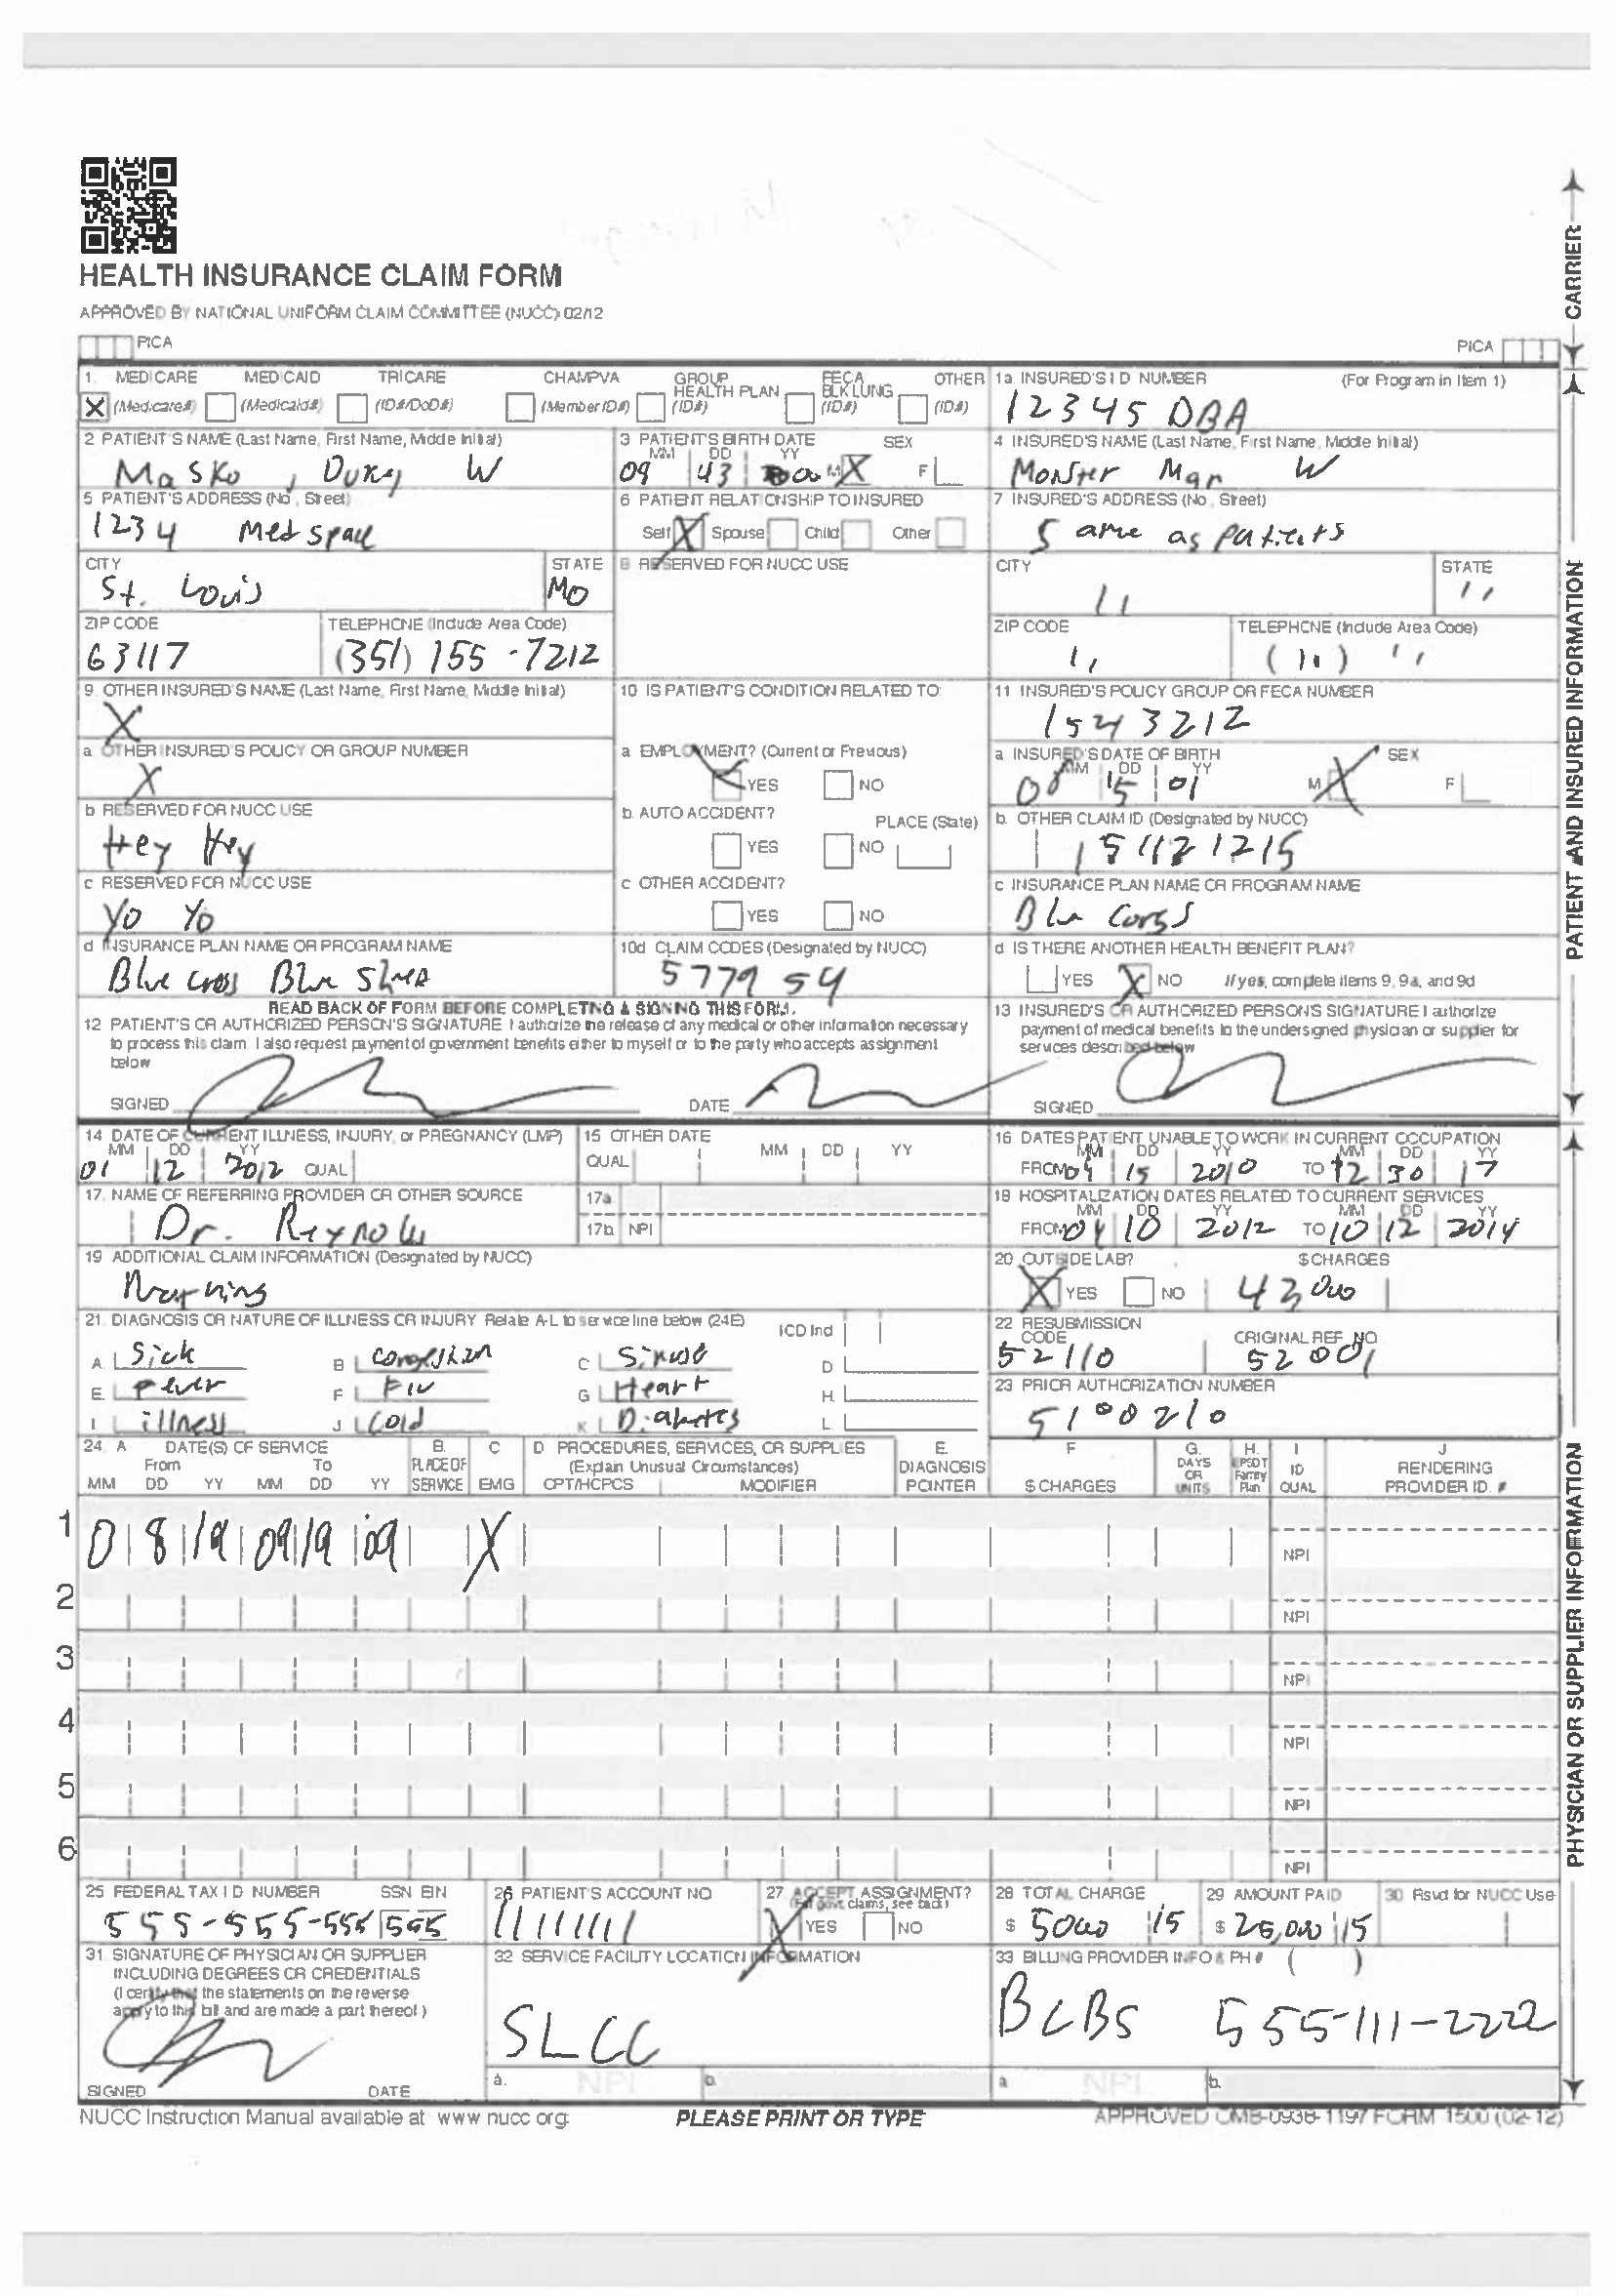 HEALTH INSURANCE CLAIM FORM
APPROVED BY NATIONAL UNIFORM CLAIM COMMITTEE (NUCC) 02/12
PICA
PICA
CARRIER
1. MEDICARE MEDICAID TRICARE CHAMPVA GROUP HEALTH PLAN FECA BLK LUNG OTHER
X (Medicare#) (Medicaid#) (ID#/DoD#) (Member ID#) (ID#) (ID#) (ID#)
1a. INSURED'S I D NUMBER (For Program in Item 1)
12345 DBA
2 PATIENT'S NAME (Last Name, First Name, Middle Initial)
Masko, Duky W
3 PATIENT'S BIRTH DATE SEX
MM DD YY
09 43 M X F
4 INSURED'S NAME (Last Name, First Name, Middle Initial)
Monster Man W
5 PATIENT'S ADDRESS (No, Street)
1234 Med space
6 PATIENT RELATIONSHIP TO INSURED
Self X Spouse Child Other
7 INSURED'S ADDRESS (No, Street)
Same as patients
CITY
St. Louis
STATE
MO
8 RESERVED FOR NUCC USE
CITY
''
STATE
''
ZIP CODE
63117
TELEPHONE (Include Area Code)
(351) 155-7212
ZIP CODE
''
TELEPHONE (Include Area Code)
('') ''
9 OTHER INSURED'S NAME (Last Name, First Name, Middle Initial)
X
10 IS PATIENT'S CONDITION RELATED TO:
11 INSURED'S POLICY GROUP OR FECA NUMBER
1543212
a OTHER INSURED'S POLICY OR GROUP NUMBER
X
a EMPLOYMENT? (Current or Previous)
X YES NO
a INSURED'S DATE OF BIRTH SEX
MM DD YY
08 15 01 M X F
b RESERVED FOR NUCC USE
Hey Hey
b AUTO ACCIDENT? PLACE (State)
YES NO
b. OTHER CLAIM ID (Designated by NUCC)
151121215
c RESERVED FOR NUCC USE
Yo Yo
c OTHER ACCIDENT?
YES NO
c INSURANCE PLAN NAME OR PROGRAM NAME
d INSURANCE PLAN NAME OR PROGRAM NAME
Blue cross Blue
10d CLAIM CODES (Designated by NUCC)
577954
d IS THERE ANOTHER HEALTH BENEFIT PLAN?
YES X NO If yes, complete items 9, 9a, and 9d
READ BACK OF FORM BEFORE COMPLETING & SIGNING THIS FORM.
12 PATIENT'S OR AUTHORIZED PERSON'S SIGNATURE I authorize the release of any medical or other information necessary
to process this claim. I also request payment of government benefits either to myself or to the party who accepts assignment
below
SIGNED DATE
13 INSURED'S OR AUTHORIZED PERSON'S SIGNATURE I authorize
payment of medical benefits to the undersigned physician or supplier for
services described below
SIGNED
PATIENT AND INSURED INFORMATION
14 DATE OF CURRENT ILLNESS, INJURY, or PREGNANCY (LMP)
MM DD YY
01 12 2012 QUAL
15 OTHER DATE
QUAL MM DD YY
16 DATES PATIENT UNABLE TO WORK IN CURRENT OCCUPATION
MM DD YY MM DD YY
FROM 04 15 2010 TO 12 30 17
17. NAME OF REFERRING PROVIDER OR OTHER SOURCE
Dr. Reynolds
17a
17b NPI
18 HOSPITALIZATION DATES RELATED TO CURRENT SERVICES
MM DD YY MM DD YY
FROM 04 10 2012 TO 10 12 2014
19 ADDITIONAL CLAIM INFORMATION (Designated by NUCC)
20 OUTSIDE LAB? $ CHARGES
X YES NO 43000
21. DIAGNOSIS OR NATURE OF ILLNESS OR INJURY Relate A-L to service line below (24E) ICD Ind
A. Sick B congestion C Sinus D
E. Fever F Flu G Heart H
I illness J Cold K Diabetes L
22 RESUBMISSION
CODE ORIGINAL REF NO
52110 52001
23 PRIOR AUTHORIZATION NUMBER
5100210
24. A DATE(S) OF SERVICE B. C D PROCEDURES, SERVICES, OR SUPPLIES E. F G. H. I J
From To PLACE OF (Explain Unusual Circumstances) DIAGNOSIS DAYS OR UNITS EPSDT Family Plan ID RENDERING
MM DD YY MM DD YY SERVICE EMG CPT/HCPCS MODIFIER POINTER $ CHARGES QUAL PROVIDER ID. #
1 08 19 09 19 09 X NPI
2 NPI
3 NPI
4 NPI
5 NPI
6 NPI
25 FEDERAL TAX I D NUMBER SSN EIN
555-555-555 555
26 PATIENT'S ACCOUNT NO
11111111
27 ACCEPT ASSIGNMENT?
(For govt. claims, see back)
X YES NO
28 TOTAL CHARGE
$ 5000 15
29 AMOUNT PAID
$ 25,000 15
30 Rsvd for NUCC Use
31. SIGNATURE OF PHYSICIAN OR SUPPLIER
INCLUDING DEGREES OR CREDENTIALS
(I certify that the statements on the reverse
apply to this bill and are made a part thereof)
SIGNED DATE
32 SERVICE FACILITY LOCATION INFORMATION
SLCC
a. NPI b.
33 BILLING PROVIDER INFO & PH # ( )
BCBS 555-111-2222
a NPI b.
PHYSICIAN OR SUPPLIER INFORMATION
NUCC Instruction Manual available at www nucc org
PLEASE PRINT OR TYPE
APPROVED OMB-0938-1197 FORM 1500 (02-12)